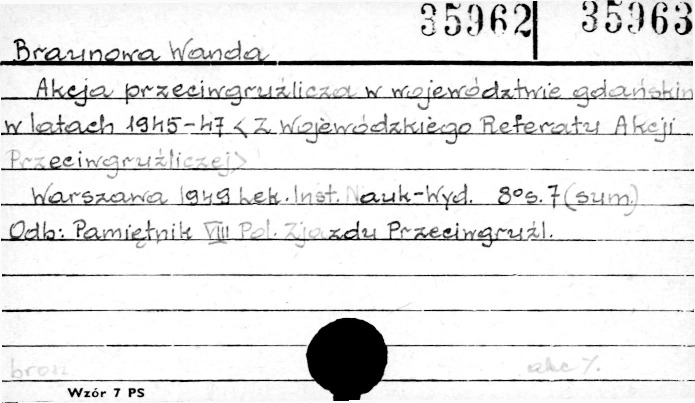 35962 | 35963
Braunowa Wanda
Akcja przeciwgruźlicza w województwie gdańskim
w latach 1945-47 < Z Wojewódzkiego Referatu Akcji
Przeciwgruźliczej>
Warszawa 1949 Lek. Inst. Nauk-Wyd. 8° s. 7 (sum.)
Odb: Pamiętnik VIII Pol. Zjazdu Przeciwgruźl.
brosz.
Wzór 7 PS